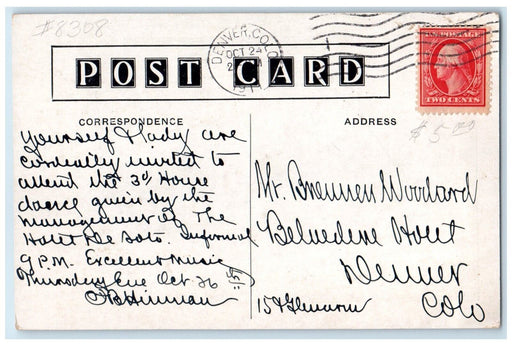 #8308
DENVER, COLO.
OCT 24
1911
POST CARD
TWO CENTS
CORRESPONDENCE
ADDRESS
$5.00
Yourself & lady are
cordially invited to
attend the 3d House
dance given by the
management of The
Hotel De Soto. Informal
9 P.M. Excellent Music
Thursday Eve Oct 26
Hinman
Mr. Brennen Woodard
Belvedere Hotel
Denver
Colo